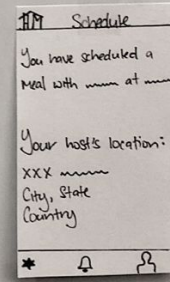 Schedule
You have scheduled a
Meal with at
Your host's location:
XXX
City, State
Country